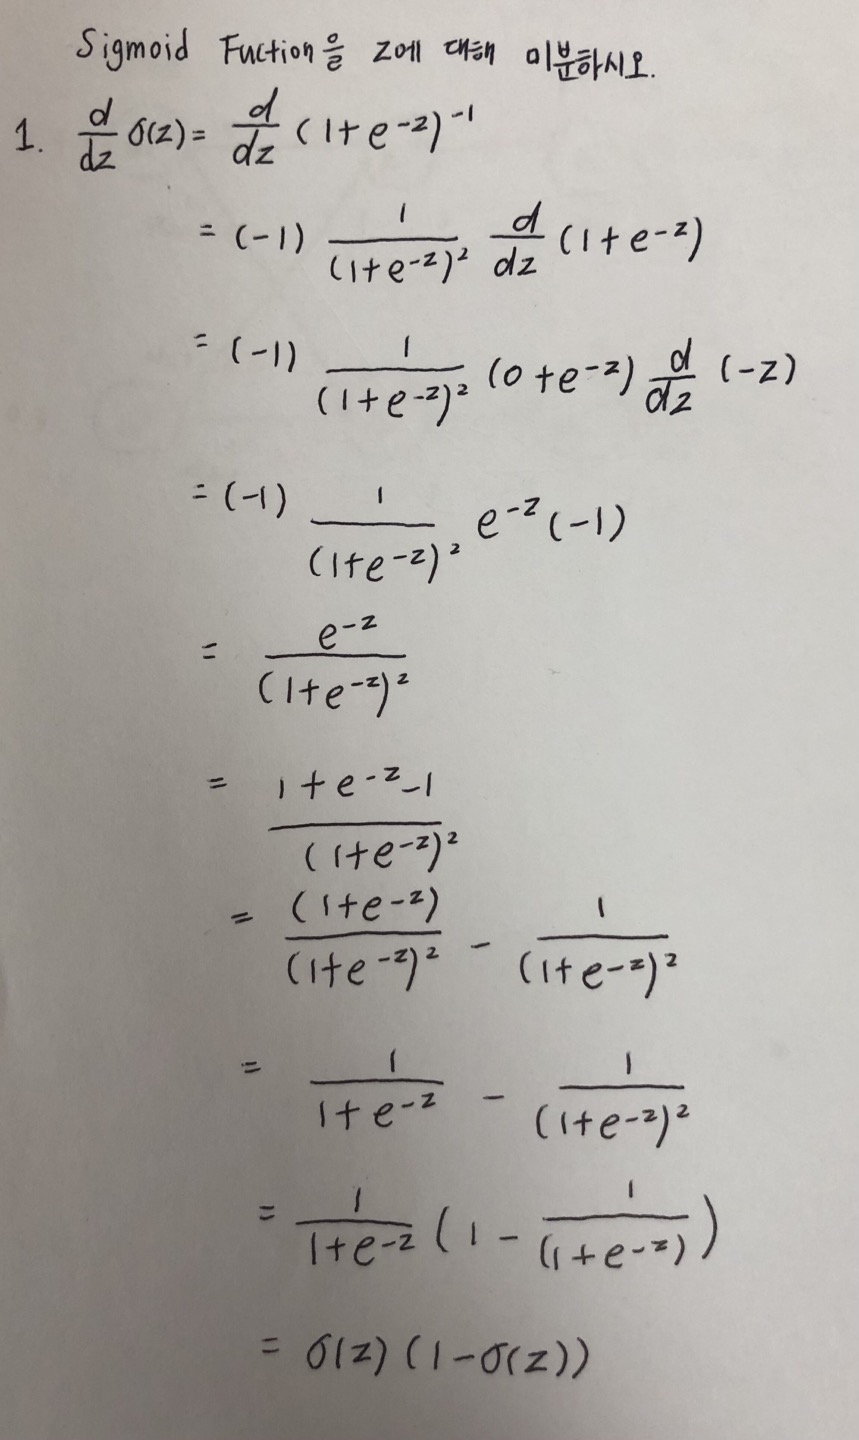 Sigmoid Fuction을 z에 대해 미분하시오.
1. d/dz σ(z) = d/dz (1+e^-z)^-1
= (-1) 1/(1+e^-z)² d/dz (1+e^-z)
= (-1) 1/(1+e^-z)² (0+e^-z) d/dz (-z)
= (-1) 1/(1+e^-z)² e^-z (-1)
= e^-z/(1+e^-z)²
= (1+e^-z-1)/(1+e^-z)²
= (1+e^-z)/(1+e^-z)² - 1/(1+e^-z)²
= 1/(1+e^-z) - 1/(1+e^-z)²
= 1/(1+e^-z) (1 - 1/(1+e^-z))
= σ(z) (1-σ(z))